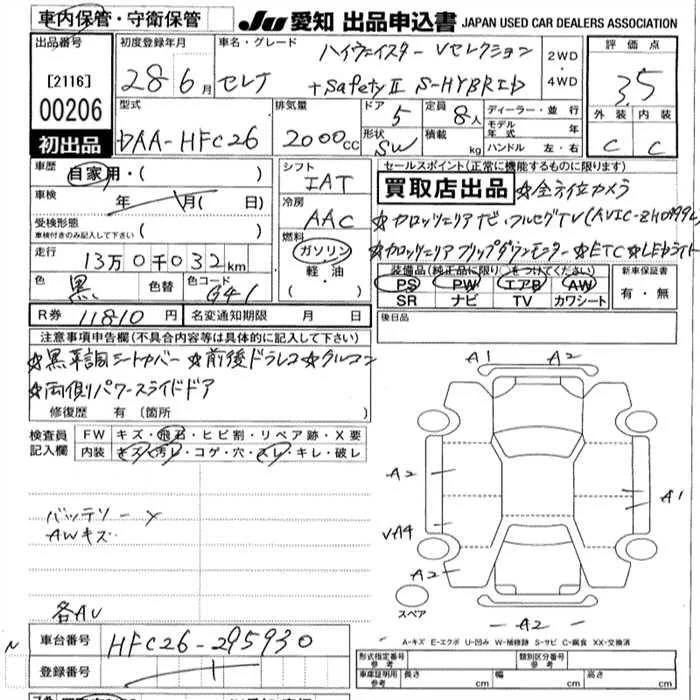 車内保管・守衛保管
JU 愛知 出品申込書 JAPAN USED CAR DEALERS ASSOCIATION
出品番号
[2116]
00206
初出品
初度登録年月
28年6月
車名・グレード
セレナ
ハイウェイスター Vセレクション
+SafetyⅡ S-HYBRID
2WD
・
4WD
評価点
3.5
外装 内装
C C
型式
DAA-HFC26
排気量
2000cc
ドア
5
形状
SW
定員
8人
積載
kg
ディーラー・並行
モデル年式 年
ハンドル 左・右
車歴
自家用・( )
車検
年 月( 日)
受検形態
車検付きのみ記入して下さい
( )
走行
13万0千032km
色
黒
色替
色コード
G41
シフト
IAT
冷房
AAC
燃料
ガソリン
・
軽・油
( )
セールスポイント(正常に機能するものに限ります)
買取店出品 ☆全方位カメラ
☆カロッツェリアナビ・フルセグTV(AVIC-ZH0999L
☆カロッツェリアフリップダウンモニター ☆ETC ☆LEDライト
装備品(純正品に限り○をつけてください)
PS PW エアB AW
SR ナビ TV カワシート
新車保証書
有・無
後日品
R券 11810 円
名変通知期限 月 日
注意事項申告欄(不具合内容等は具体的に記入して下さい)
☆黒革調シートカバー ☆前後ドラレコ ☆クルコン
☆両側パワースライドドア
修復歴 有 〔箇所 〕
検査員記入欄
FW キズ・飛石・ヒビ割・リペア跡・X要
内装 キズ・汚レ・コゲ・穴・スレ・キレ・破レ
バッテリー ×
AWキズ
各AU
A1 A2
A2
A1
VA4
A2
A2
スペア
A-キズ E-エクボ U-凹み W-補修跡 S-サビ C-腐食 XX-交換済
N
車台番号 HFC26-295930
登録番号
形式指定番号
参考
類別区分番号
参考
車庫証明用
参考
長さ cm
幅 cm
高さ cm